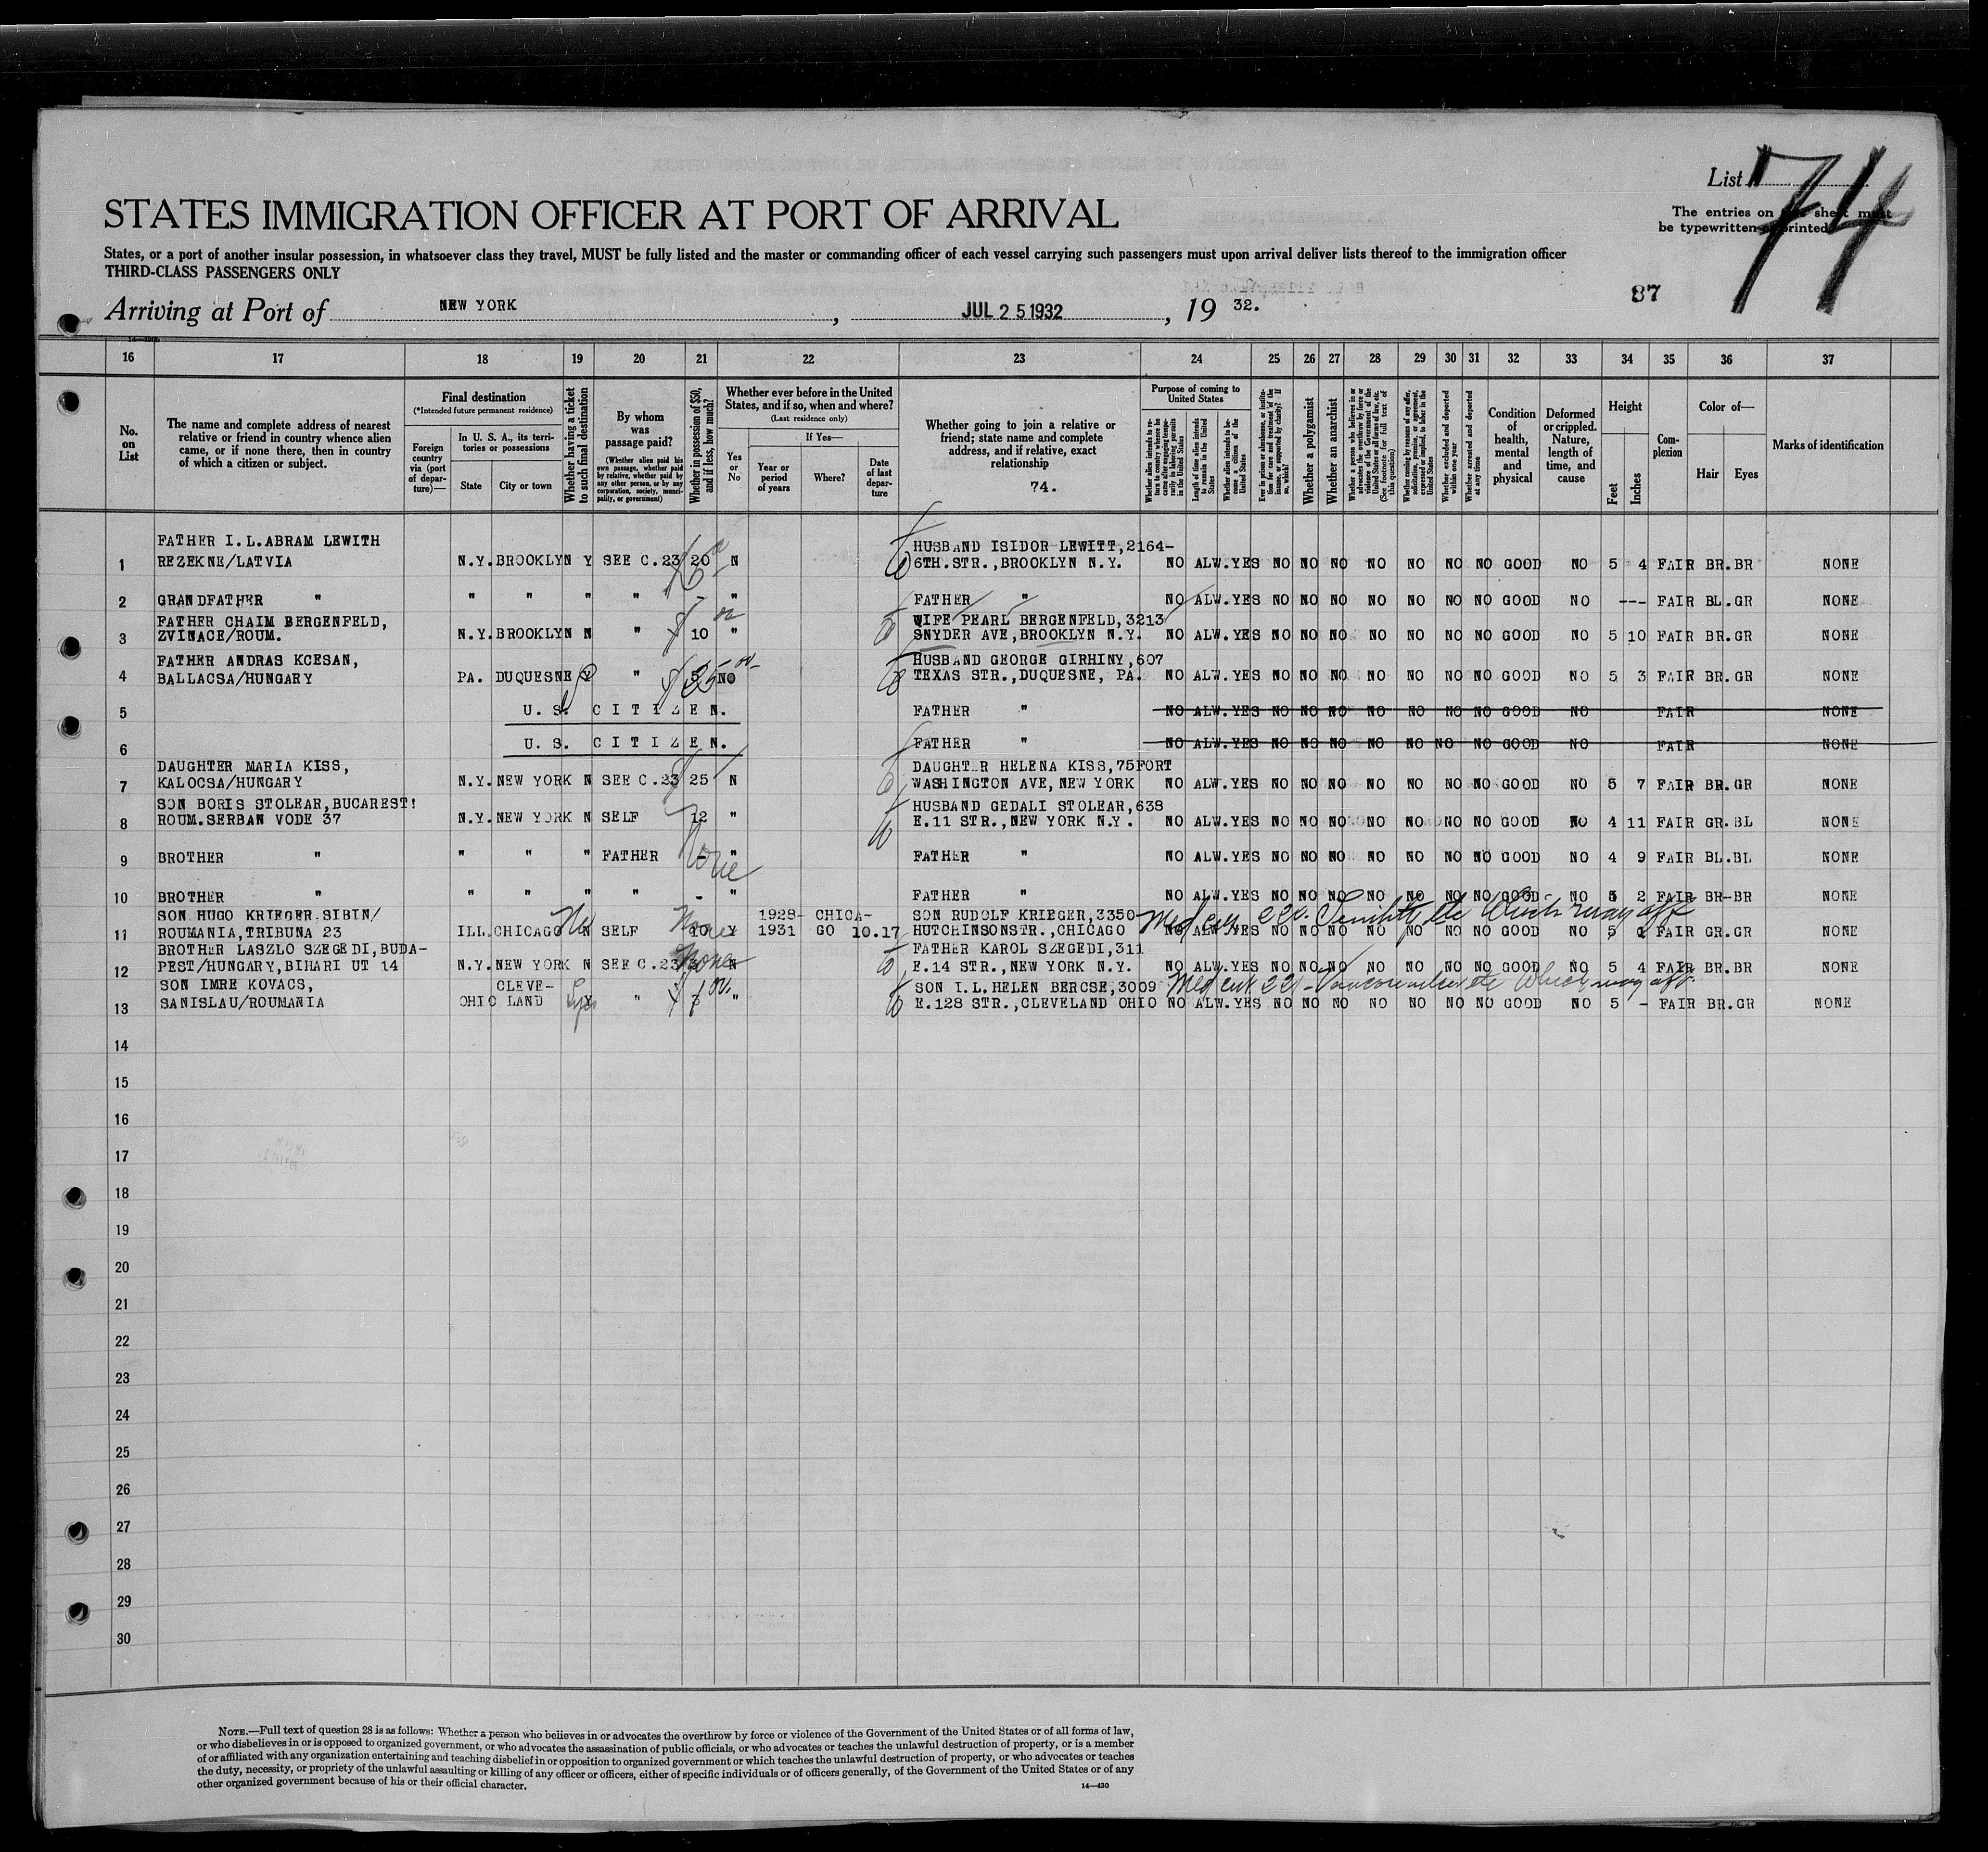 List 74
STATES IMMIGRATION OFFICER AT PORT OF ARRIVAL
The entries on this sheet must
be typewritten or printed
States, or a port of another insular possession, in whatsoever class they travel, MUST be fully listed and the master or commanding officer of each vessel carrying such passengers must upon arrival deliver lists thereof to the immigration officer
THIRD-CLASS PASSENGERS ONLY
87
Arriving at Port of NEW YORK, JUL 25 1932, 19 32.
16 17 18 19 20 21 22 23 24 25 26 27 28 29 30 31 32 33 34 35 36 37
No. on List
The name and complete address of nearest relative or friend in country whence alien came, or if none there, then in country of which a citizen or subject.
Final destination
(*Intended future permanent residence)
Foreign country via (port of departure)—
In U. S. A., its territories or possessions
State City or town
Whether having a ticket to such final destination
By whom was passage paid?
(Whether alien paid his own passage, whether paid by relative, whether paid by any other person, or by any corporation, society, municipality, or government)
Whether in possession of $50, and if less, how much?
Whether ever before in the United States, and if so, when and where?
(Last residence only)
Yes or No
If Yes—
Year or period of years
Where?
Date of last departure
Whether going to join a relative or friend; state name and complete address, and if relative, exact relationship
74.
Purpose of coming to United States
Whether alien intends to return to country whence he came after engaging temporarily in laboring pursuits in the United States
Length of time alien intends to remain in the United States
Whether alien intends to become a citizen of the United States
Ever in prison or almshouse, or institution for care and treatment of the insane, or supported by charity? If so, which?
Whether a polygamist
Whether an anarchist
Whether a person who believes in or advocates the overthrow by force or violence of the Government of the United States or all forms of law, etc. (See footnote for full text of this question)
Whether coming by reasons of any offer, solicitation, promise, or agreement, expressed or implied, to labor in the United States
Whether excluded and deported within one year
Whether arrested and deported at any time
Condition of health, mental and physical
Deformed or crippled. Nature, length of time, and cause
Height
Feet Inches
Complexion
Color of—
Hair Eyes
Marks of identification
FATHER I.L.ABRAM LEWITH HUSBAND ISIDOR LEWITT,2164-
1 REZEKNE/LATVIA N.Y. BROOKLYN Y SEE C.23 20 N 6TH.STR.,BROOKLYN N.Y. NO ALW.YES NO NO NO NO NO NO NO GOOD NO 5 4 FAIR BR.BR NONE
2 GRANDFATHER " " " " " - " FATHER " NO ALW.YES NO NO NO NO NO NO NO GOOD NO --- FAIR BL.GR NONE
FATHER CHAIM BERGENFELD, WIFE PEARL BERGENFELD,3213
3 ZVINACE/ROUM. N.Y. BROOKLYN N " 10 " SNYDER AVE,BROOKLYN N.Y. NO ALW.YES NO NO NO NO NO NO NO GOOD NO 5 10 FAIR BR.GR NONE
FATHER ANDRAS KCESAN, HUSBAND GEORGE GIRHINY,607
4 BALLACSA/HUNGARY PA. DUQUESNE Y " 25 NO TEXAS STR.,DUQUESNE, PA. NO ALW.YES NO NO NO NO NO NO NO GOOD NO 5 3 FAIR BR.GR NONE
5 U. S. C I T I Z E N. FATHER " NO ALW.YES NO NO NO NO NO NO NO GOOD NO FAIR NONE
6 U. S. C I T I Z E N. FATHER " NO ALW.YES NO NO NO NO NO NO NO GOOD NO FAIR NONE
DAUGHTER MARIA KISS, DAUGHTER HELENA KISS,75FORT
7 KALOCSA/HUNGARY N.Y. NEW YORK N SEE C.23 25 N WASHINGTON AVE,NEW YORK NO ALW.YES NO NO NO NO NO NO NO GOOD NO 5 7 FAIR BR.GR NONE
SON BORIS STOLEAR,BUCAREST! HUSBAND GEDALI STOLEAR,638
8 ROUM.SERBAN VODE 37 N.Y. NEW YORK N SELF 12 " E.11 STR.,NEW YORK N.Y. NO ALW.YES NO NO NO NO NO NO NO GOOD NO 4 11 FAIR GR.BL NONE
9 BROTHER " " " " FATHER None " FATHER " NO ALW.YES NO NO NO NO NO NO NO GOOD NO 4 9 FAIR BL.BL NONE
10 BROTHER " " " " " - " FATHER " NO ALW.YES NO NO NO NO NO NO NO GOOD NO 5 2 FAIR BR-BR NONE
SON HUGO KRIEGER.SIBIN/ 1928- CHICA- SON RUDOLF KRIEGER,3350- Med cer. Senility etc which may aff
11 ROUMANIA,TRIBUNA 23 ILL. CHICAGO No N SELF None 10 Y 1931 GO 10.17 HUTCHINSONSTR.,CHICAGO NO ALW.YES NO NO NO NO NO NO NO GOOD NO 5 FAIR GR.GR NONE
BROTHER LASZLO SZEGEDI,BUDA- FATHER KAROL SZEGEDI,311
12 PEST/HUNGARY,BIHARI UT 14 N.Y. NEW YORK N SEE C.23 None N E.14 STR.,NEW YORK N.Y. NO ALW.YES NO NO NO NO NO NO NO GOOD NO 5 4 FAIR BR.BR NONE
SON IMRE KOVACS, CLEVE- SON I.L.HELEN BERCSE,3009 which may aff.
13 SANISLAU/ROUMANIA OHIO LAND Y " " E.128 STR.,CLEVELAND OHIO NO ALW.YES NO NO NO NO NO NO NO GOOD NO 5 - FAIR BR.GR NONE
14
15
16
17
18
19
20
21
22
23
24
25
26
27
28
29
30
NOTE.—Full text of question 28 is as follows: Whether a person who believes in or advocates the overthrow by force or violence of the Government of the United States or of all forms of law,
or who disbelieves in or is opposed to organized government, or who advocates the assassination of public officials, or who advocates or teaches the unlawful destruction of property, or is a member
of or affiliated with any organization entertaining and teaching disbelief in or opposition to organized government or which teaches the unlawful destruction of property, or who advocates or teaches
the duty, necessity, or propriety of the unlawful assaulting or killing of any officer or officers, either of specific individuals or of officers generally, of the Government of the United States or of any
other organized government because of his or their official character.
14—430